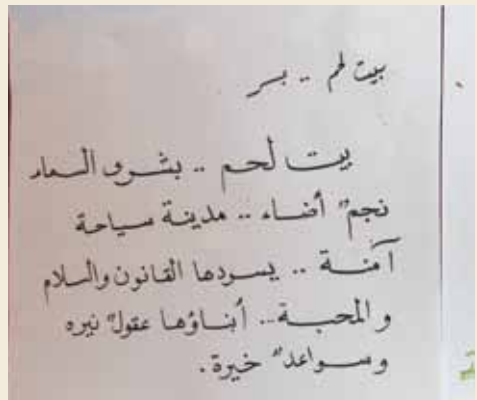 بيت لحم .. بسر
بيت لحم .. بشرى السماء
نجمٌ أضاء .. مدينة سياحة
آمنة .. يسودها القانون والسلام
والمحبة .. أبناؤها عقولٌ نيره
وسواعدٌ خيرة.